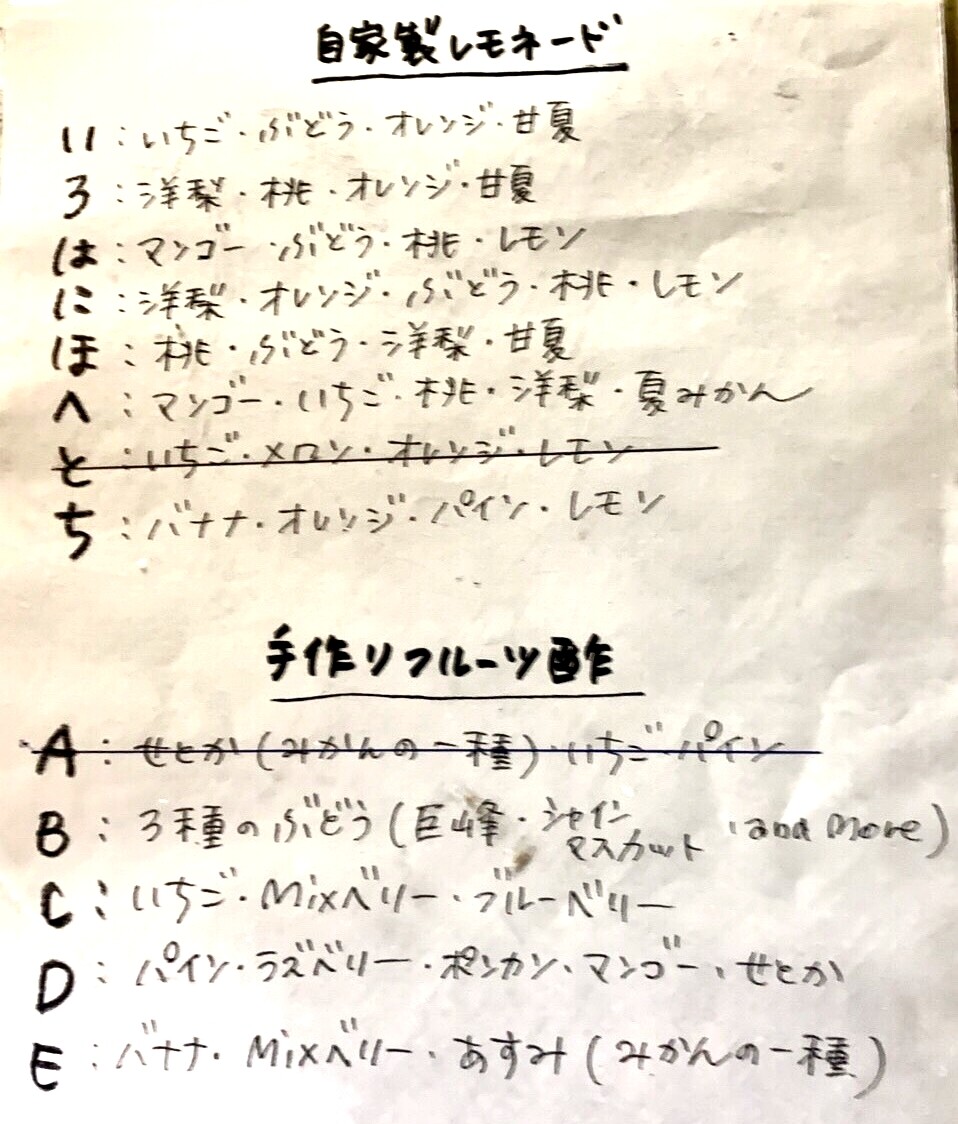 自家製レモネード
い：いちご・ぶどう・オレンジ・甘夏
ろ：洋梨・桃・オレンジ・甘夏
は：マンゴー・ぶどう・桃・レモン
に：洋梨・オレンジ・ぶどう・桃・レモン
ほ：桃・ぶどう・洋梨・甘夏
へ：マンゴー・いちご・桃・洋梨・夏みかん
と：いちご・メロン・オレンジ・レモン
ち：バナナ・オレンジ・パイン・レモン
手作りフルーツ酢
A：せとか(みかんの一種)・いちご・パイン
B：3種のぶどう(巨峰・シャインマスカット、and more)
C：いちご・Mixベリー・ブルーベリー
D：パイン・ラズベリー・ポンカン、マンゴー、せとか
E：バナナ・Mixベリー、あすみ(みかんの一種)